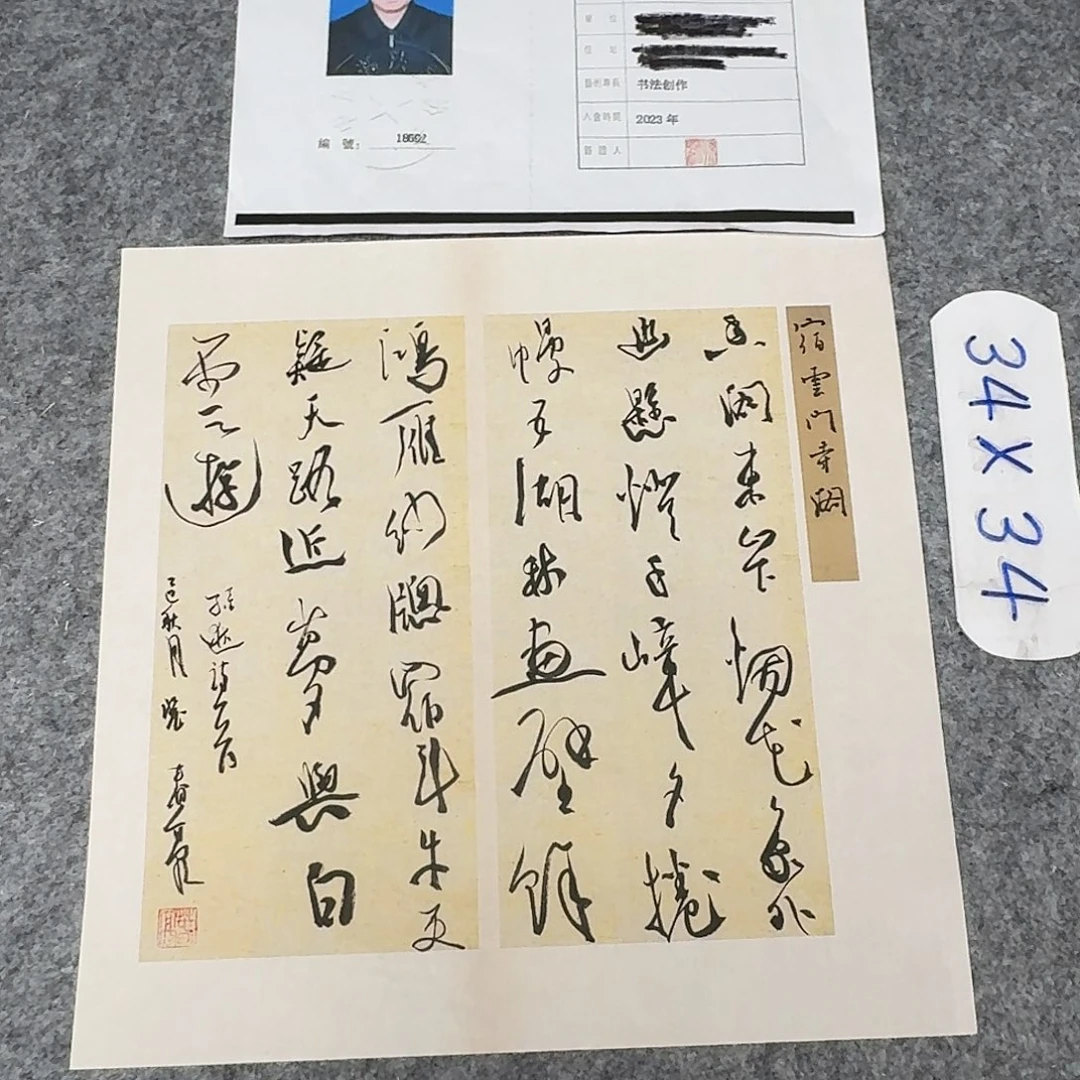 單 位
住 址
藝術專長 书法创作
入會時間 2023 年
簽證人
編 號:
宿雲門寺閣
香閣東山下烟花象外
幽懸燈千嶂夕捲
幔五湖秋畫壁餘
鴻雁紗牕宿斗牛更
疑天路近夢與白
雲遊
孫逖詩一首
乙巳秋月
34X34